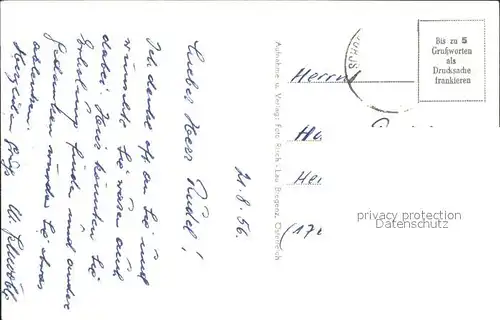 21.8.56.
Lieber Herr Rudel!
Ich denke oft an Sie und
wünschte Sie wären auch
dabei. Hier könnten Sie
Erholung finden und andere
Gedanken würden Sie etwas
ablenken.
Herzlichen Gruß
Aufnahme u. Verlag: Foto Risch-Lau Bregenz, Österreich
Bis zu 5
Grußworten
als
Drucksache
frankieren
Herrn
Ha
Her
(17
privacy protection
Datenschutz